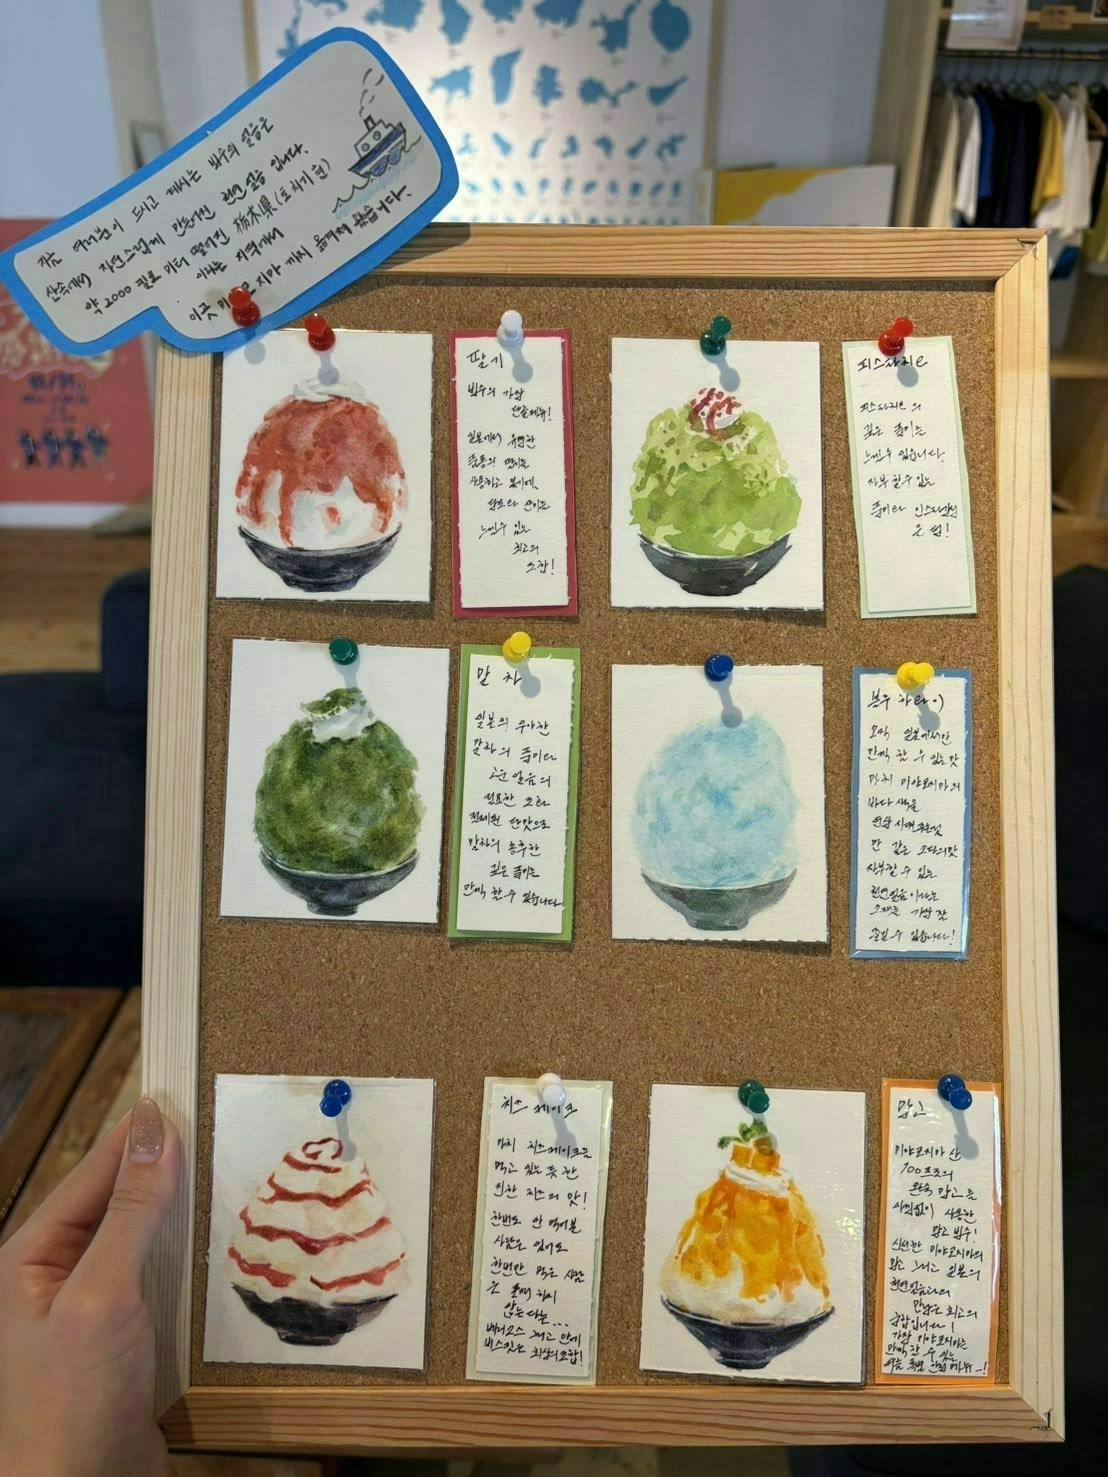 지금 여러분이 드시고 계시는 빙수의 얼음은
산속에서 자연스럽게 만들어진 천연 얼음 입니다.
약 2000 킬로 미터 떨어진 栃木県(토치기 현)
이라는 지역에서
이곳 미야코지마 까지 옮겨져 왔습니다.
딸기
빙수의 가장
단골메뉴!
일본에서 유명한
품종의 딸기를
사용하고 있기에,
달콤함과 산미를
느낄수 있는
최고의
조합!
피스타치오
피스타치오 의
깊은 풍미를
느낄수 있습니다.
자부 할수 있는
풍미와 인스타감성
은 덤!
말 차
일본의 우아한
말차의 풍미와
얼음의
절제된 단맛으로
말차의 농후한
깊은 풍미를
만끽 할 수 있습니다
블루 하와이
오직 일본에서만
만끽 할 수 있는 맛
마치 미야코지마의
바다 색을
연상 시켜주는것
만 같은 소다의맛
자부할 수 있는
천연얼음 이라는
소재를 가장 잘
즐길 수 있습니다!
치즈 케이크
마치 치즈케이크를
먹고 있는 듯 한
진한 치즈의 맛!
한번도 안 먹어본
사람은 있어도
한번만 먹은 사람
은 존재 하지
않는다는...
베리소스 그리고 안에
비스킷은 최상의조합!
망고
미야코지마 산
100프로의
완숙 망고를
아낌없이 사용한
망고 빙수!
신선한 미야코지마의
망고 그리고 일본의
천연얼음과의
만남은 최고의
궁합입니다!
가장 미야코지마를
만끽 할 수 있는
여름 특별 한정 메뉴-!